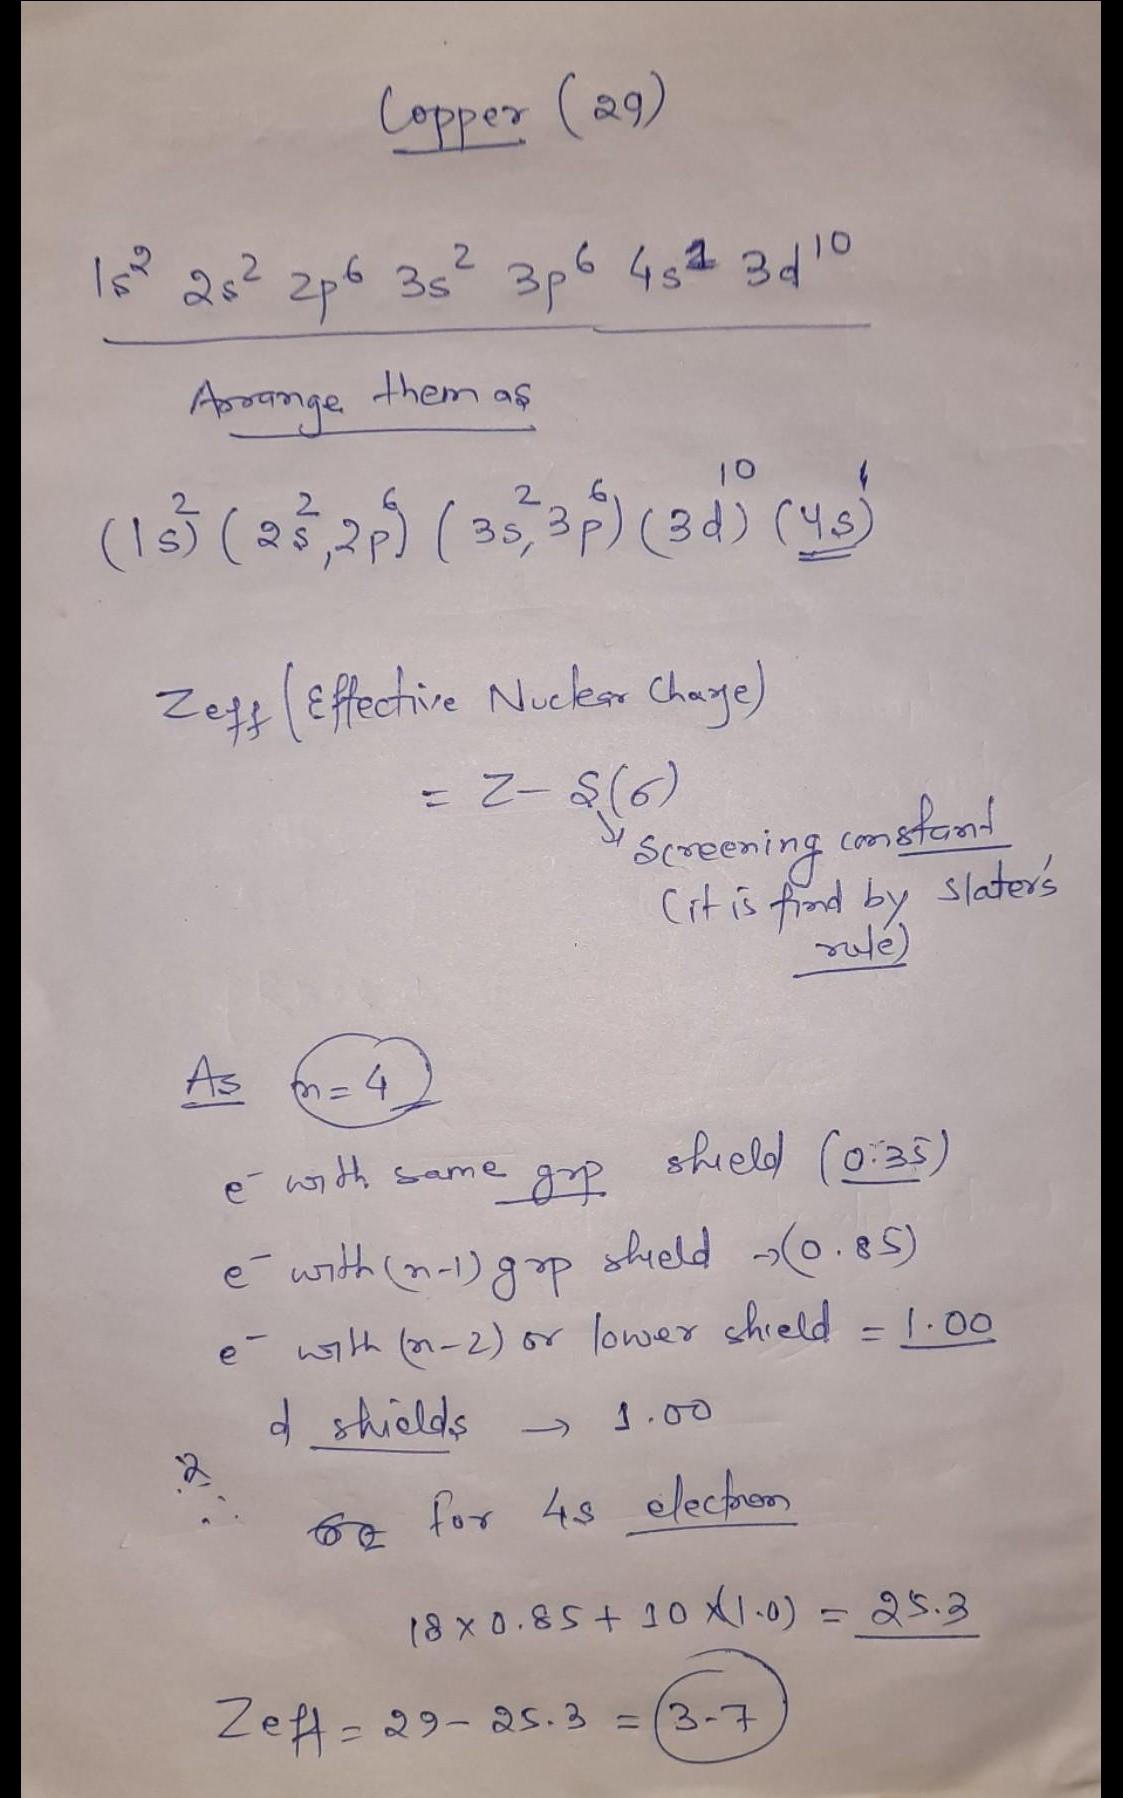 Copper (29)
1s² 2s² 2p⁶ 3s² 3p⁶ 4s¹ 3d¹⁰
Arrange them as
(1s)² (2s², 2p⁶) (3s², 3p⁶) (3d)¹⁰ (4s)¹
Zeff (Effective Nuclear Charge)
= Z – S(σ)
Screening constant
(it is find by Slater's
rule)
As n=4
e⁻ with same grp shield (0.35)
e⁻ with (n-1) grp shield → (0.85)
e⁻ with (n-2) or lower shield = 1.00
d shields → 1.00
∴ for 4s electron
18 × 0.85 + 10 × (1.0) = 25.3
Zeff = 29 – 25.3 = 3.7